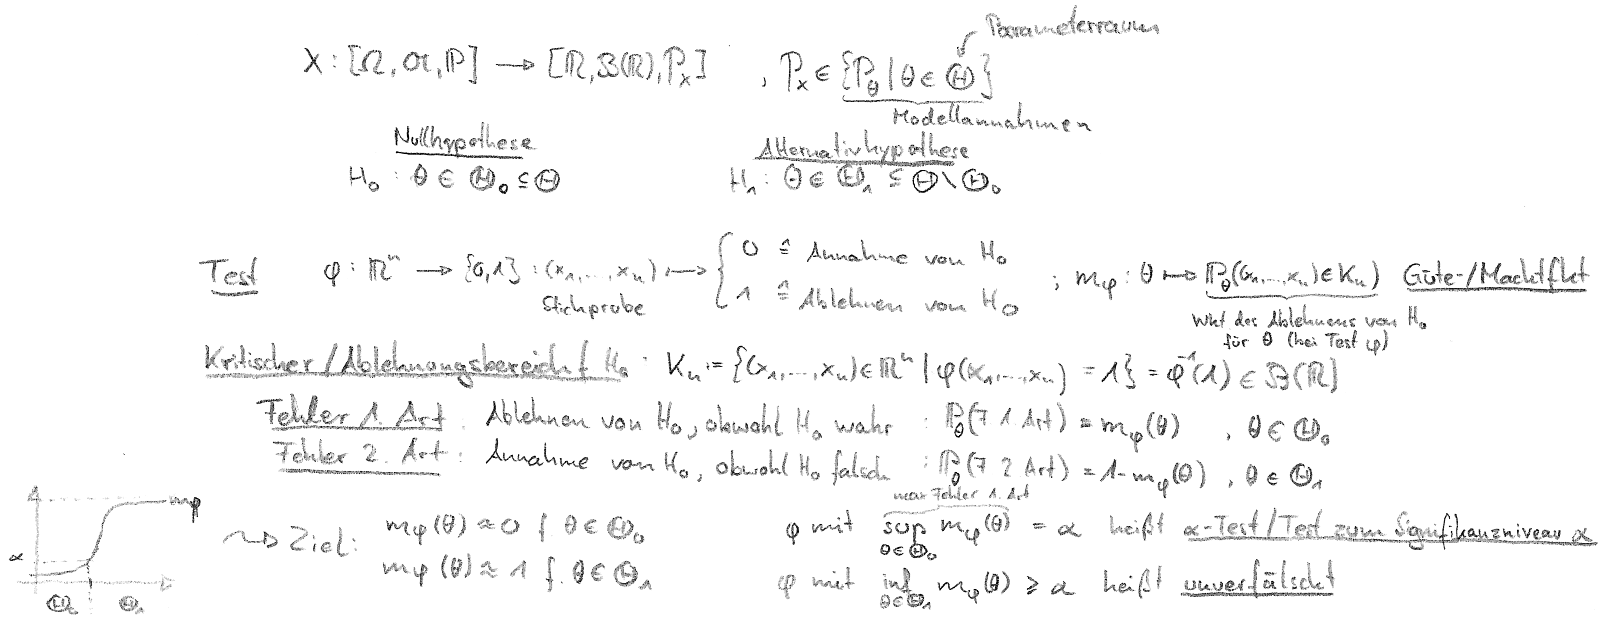 Parameterraum
X : [Ω, 𝔄, ℙ] → [ℝ, 𝔅(ℝ), P_X] , P_X ∈ {P_θ | θ ∈ Θ}
Modellannahmen
Nullhypothese Alternativhypothese
H₀ : θ ∈ Θ₀ ⊆ Θ H₁ : θ ∈ Θ₁ ⊆ Θ \ Θ₀
Test φ : ℝⁿ → {0,1} : (x₁,...,xₙ) ↦ { 0 ≙ Annahme von H₀
1 ≙ Ablehnen von H₀
Stichprobe
; m_φ : θ ↦ ℙ_θ((x₁,...,xₙ) ∈ Kₙ) Güte-/Machtfkt
Wkt des Ablehnens von H₀
für θ (bei Test φ)
Kritischer/Ablehnungsbereich f H₀ : Kₙ := {(x₁,...,xₙ) ∈ ℝⁿ | φ(x₁,...,xₙ) = 1} = φ⁻¹(1) ∈ 𝔅(ℝ)
Fehler 1. Art : Ablehnen von H₀, obwohl H₀ wahr : ℙ_θ(F 1 Art) = m_φ(θ) , θ ∈ Θ₀
Fehler 2. Art : Annahme von H₀, obwohl H₀ falsch : ℙ_θ(F 2 Art) = 1 - m_φ(θ) , θ ∈ Θ₁
1 m_φ
α
Θ₀ Θ₁
⇝ Ziel : m_φ(θ) ≈ 0 f θ ∈ Θ₀
m_φ(θ) ≈ 1 f. θ ∈ Θ₁
max Fehler 1. Art
φ mit sup_{θ∈Θ₀} m_φ(θ) = α heißt α-Test/Test zum Signifikanzniveau α
φ mit inf_{θ∈Θ₁} m_φ(θ) ≥ α heißt unverfälscht